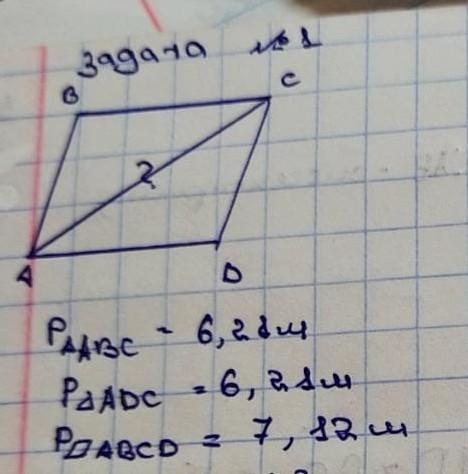 Задача №1
B C
?
A D
P△ABC = 6,21м
P△ADC = 6,21м
P▱ABCD = 7,12м